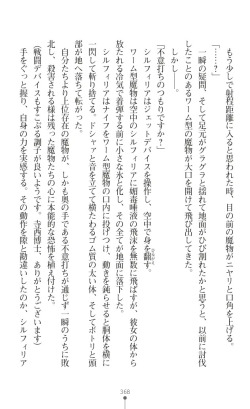 もう少しで射程距離に入ると思われた時、目の前の魔物がニヤリと口角を上げる。
「………？」
一瞬の疑問、そして足元がグラグラと揺れて地面がひび割れたかと思うと、以前に討伐
したことのあるワーム型の魔物が大口を開けて飛び出してきた。
しかし――。
「不意打ちのつもりですか？」
シルフィリアはジェットデバイスを操作し、空中で身を翻す。
ワーム型魔物は空中のシルフィリアに媚毒唾液の飛沫を無数に飛ばすが、彼女の体から
放たれる冷気で着弾する前に小さな氷と化し、その全てが地面に落下した。
シルフィリアはナイフをワーム型魔物の口内に投げつけ、動きを鈍らせると胴体を横に
一閃して斬り捨てる。ドシャァと音を立てて横たわるゴム質の太い体、そしてボトリと頭
部が地へ落ちて転がった。
自分たちより上位存在の魔物が、しかも奥の手である不意打ちが通じず一瞬のうちに敗
北し、殺害される様は残った魔物たちの心に本能的な恐怖を植え付けた。
（戦闘デバイスもすこぶる調子が良いようです。寺西博士、ありがとうございます）
手をぐっと握り、自身の力を実感する。その動作を隙と勘違いしたのか、シルフィリア
368